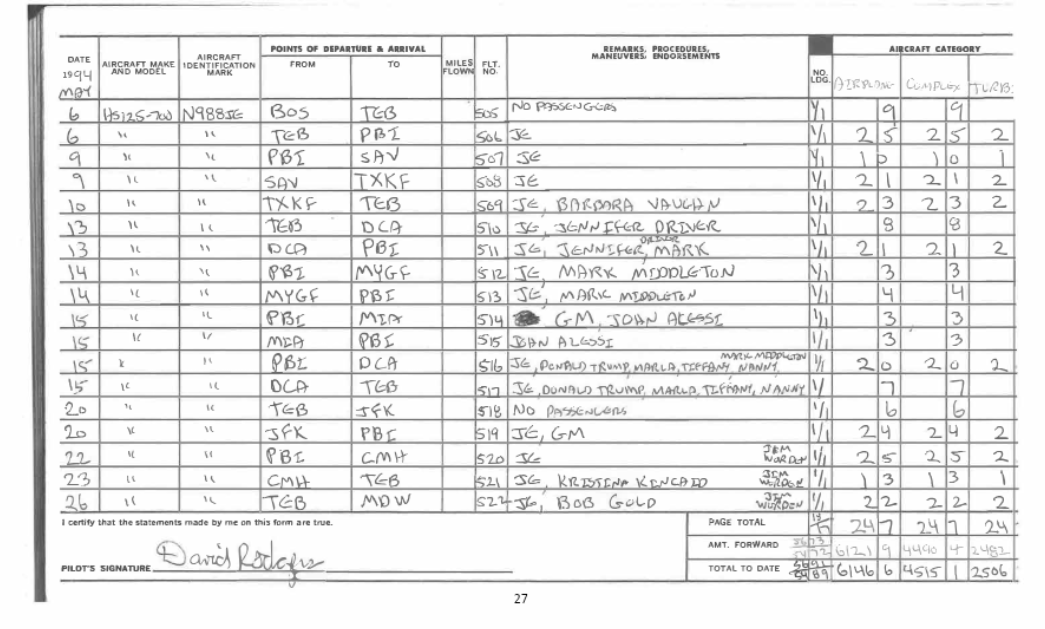 DATE AIRCRAFT MAKE AND MODEL AIRCRAFT IDENTIFICATION MARK POINTS OF DEPARTURE & ARRIVAL FROM TO MILES FLOWN FLT. NO. REMARKS, PROCEDURES, MANEUVERS, ENDORSEMENTS NO. LDG. AIRCRAFT CATEGORY
1994 MAY AIRPLANE COMPLEX TURB.
6 HS125-700 N988JE BOS TEB 505 NO PASSENGERS 1/1 9 9
6 " " TEB PBI 506 JE 1/1 2 5 2 5 2
9 " " PBI SAV 507 JE 1/1 1 0 1 0 1
9 " " SAV TXKF 508 JE 1/1 2 1 2 1 2
10 " " TXKF TEB 509 JE, BARBARA VAUGHN 1/1 2 3 2 3 2
13 " " TEB DCA 510 JE, JENNIFER DRIVER 1/1 8 8
13 " " DCA PBI 511 JE, JENNIFER DRIVER, MARK 1/1 2 1 2 1 2
14 " " PBI MYGF 512 JE, MARK MIDDLETON 1/1 3 3
14 " " MYGF PBI 513 JE, MARK MIDDLETON 1/1 4 4
15 " " PBI MIA 514 GM, JOHN ALESSI 1/1 3 3
15 " " MIA PBI 515 JOHN ALESSI 1/1 3 3
15 " " PBI DCA 516 JE, DONALD TRUMP, MARLA, TIFFANY, NANNY, MARK MIDDLETON 1/1 2 0 2 0 2
15 " " DCA TEB 517 JE, DONALD TRUMP, MARLA, TIFFANY, NANNY 1/ 7 7
20 " " TEB JFK 518 NO PASSENGERS 1/1 6 6
20 " " JFK PBI 519 JE, GM 1/1 2 4 2 4 2
22 " " PBI CMH 520 JE JIM WORDEN 1/1 2 5 2 5 2
23 " " CMH TEB 521 JE, KRISTINA KINCAID JIM WORDEN 1/1 1 3 1 3 1
26 " " TEB MDW 522 JE, BOB GOLD JIM WORDEN 1/1 2 2 2 2 2
I certify that the statements made by me on this form are true.
PAGE TOTAL 24 7 24 7 24
AMT. FORWARD 6121 9 4490 4 2482
PILOT'S SIGNATURE David Rodgers
TOTAL TO DATE 6146 6 4515 1 2506
27